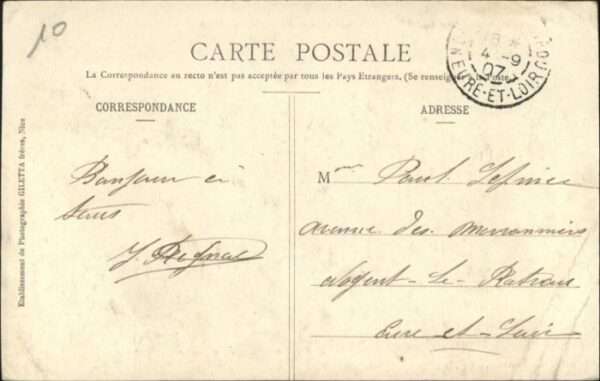 10
CARTE POSTALE
La Correspondance au recto n'est pas acceptée par tous les Pays Etrangers. (Se renseigner à la Poste.)
CORRESPONDANCE
ADRESSE
Bonjour à
tous
Y.
Mme Paul
avenue des marronniers
Nogent-le-Rotrou
Eure-et-Loir
4-9
07
EURE-ET-LOIR
Etablissement de Photographie GILETTA frères, Nice